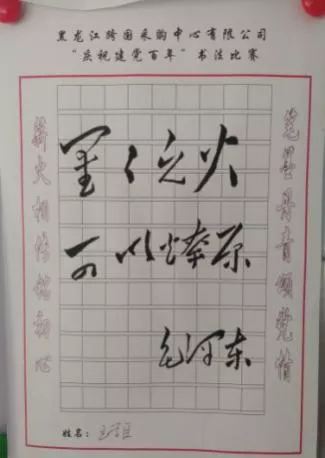 黑龙江跨国采购中心有限公司
“庆祝建党百年”书法比赛
笔墨丹青颂党情
星々之火
可以燎原
毛泽东
薪火相传铭初心
姓名：